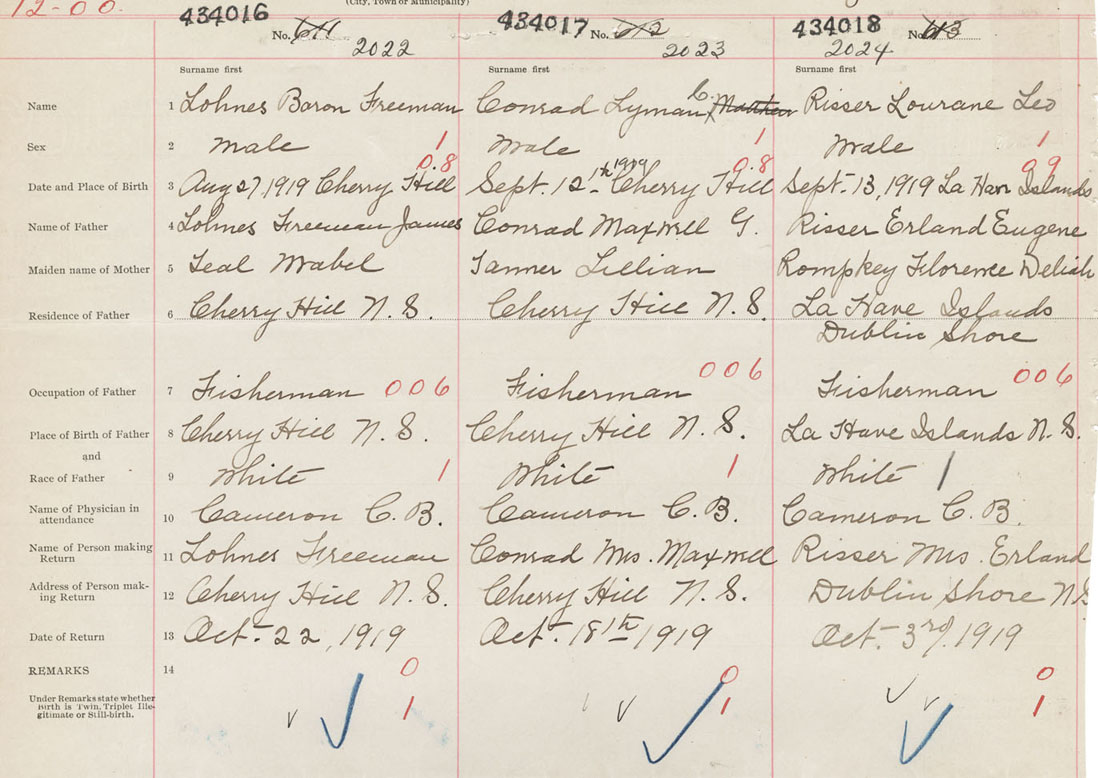 12-00.
(City, Town or Municipality)
434016 434017 434018
No. 611 No. 612 No. 613
2022 2023 2024
Surname first Surname first Surname first
Name 1 Lohnes Baron Freeman Conrad Lyman C. Risser Lourane Leo
Sex 2 Male 1 Male 1 Male 1
08 08 09
Date and Place of Birth 3 Aug 27, 1919 Cherry Hill Sept. 12th 1919 Cherry Hill Sept. 13, 1919 La Have Islands
Name of Father 4 Lohnes Freeman James Conrad Maxwell G. Risser Erland Eugene
Maiden name of Mother 5 Teal Mabel Tanner Lillian Rompkey Florence Deliah
Residence of Father 6 Cherry Hill N.S. Cherry Hill N.S. La Have Islands
Dublin Shore
Occupation of Father 7 Fisherman 006 Fisherman 006 Fisherman 006
Place of Birth of Father 8 Cherry Hill N.S. Cherry Hill N.S. La Have Islands N.S.
and
Race of Father 9 White 1 White 1 White 1
Name of Physician in
attendance 10 Cameron C.B. Cameron C.B. Cameron C.B.
Name of Person making
Return 11 Lohnes Freeman Conrad Mrs. Maxwell Risser Mrs. Erland
Address of Person mak-
ing Return 12 Cherry Hill N.S. Cherry Hill N.S. Dublin Shore N.S
Date of Return 13 Oct. 22, 1919 Oct. 18th 1919 Oct. 3rd, 1919
REMARKS 14 0 0 0
Under Remarks state whether
Birth is Twin, Triplet Ille-
gitimate or Still-birth. 1 1 1